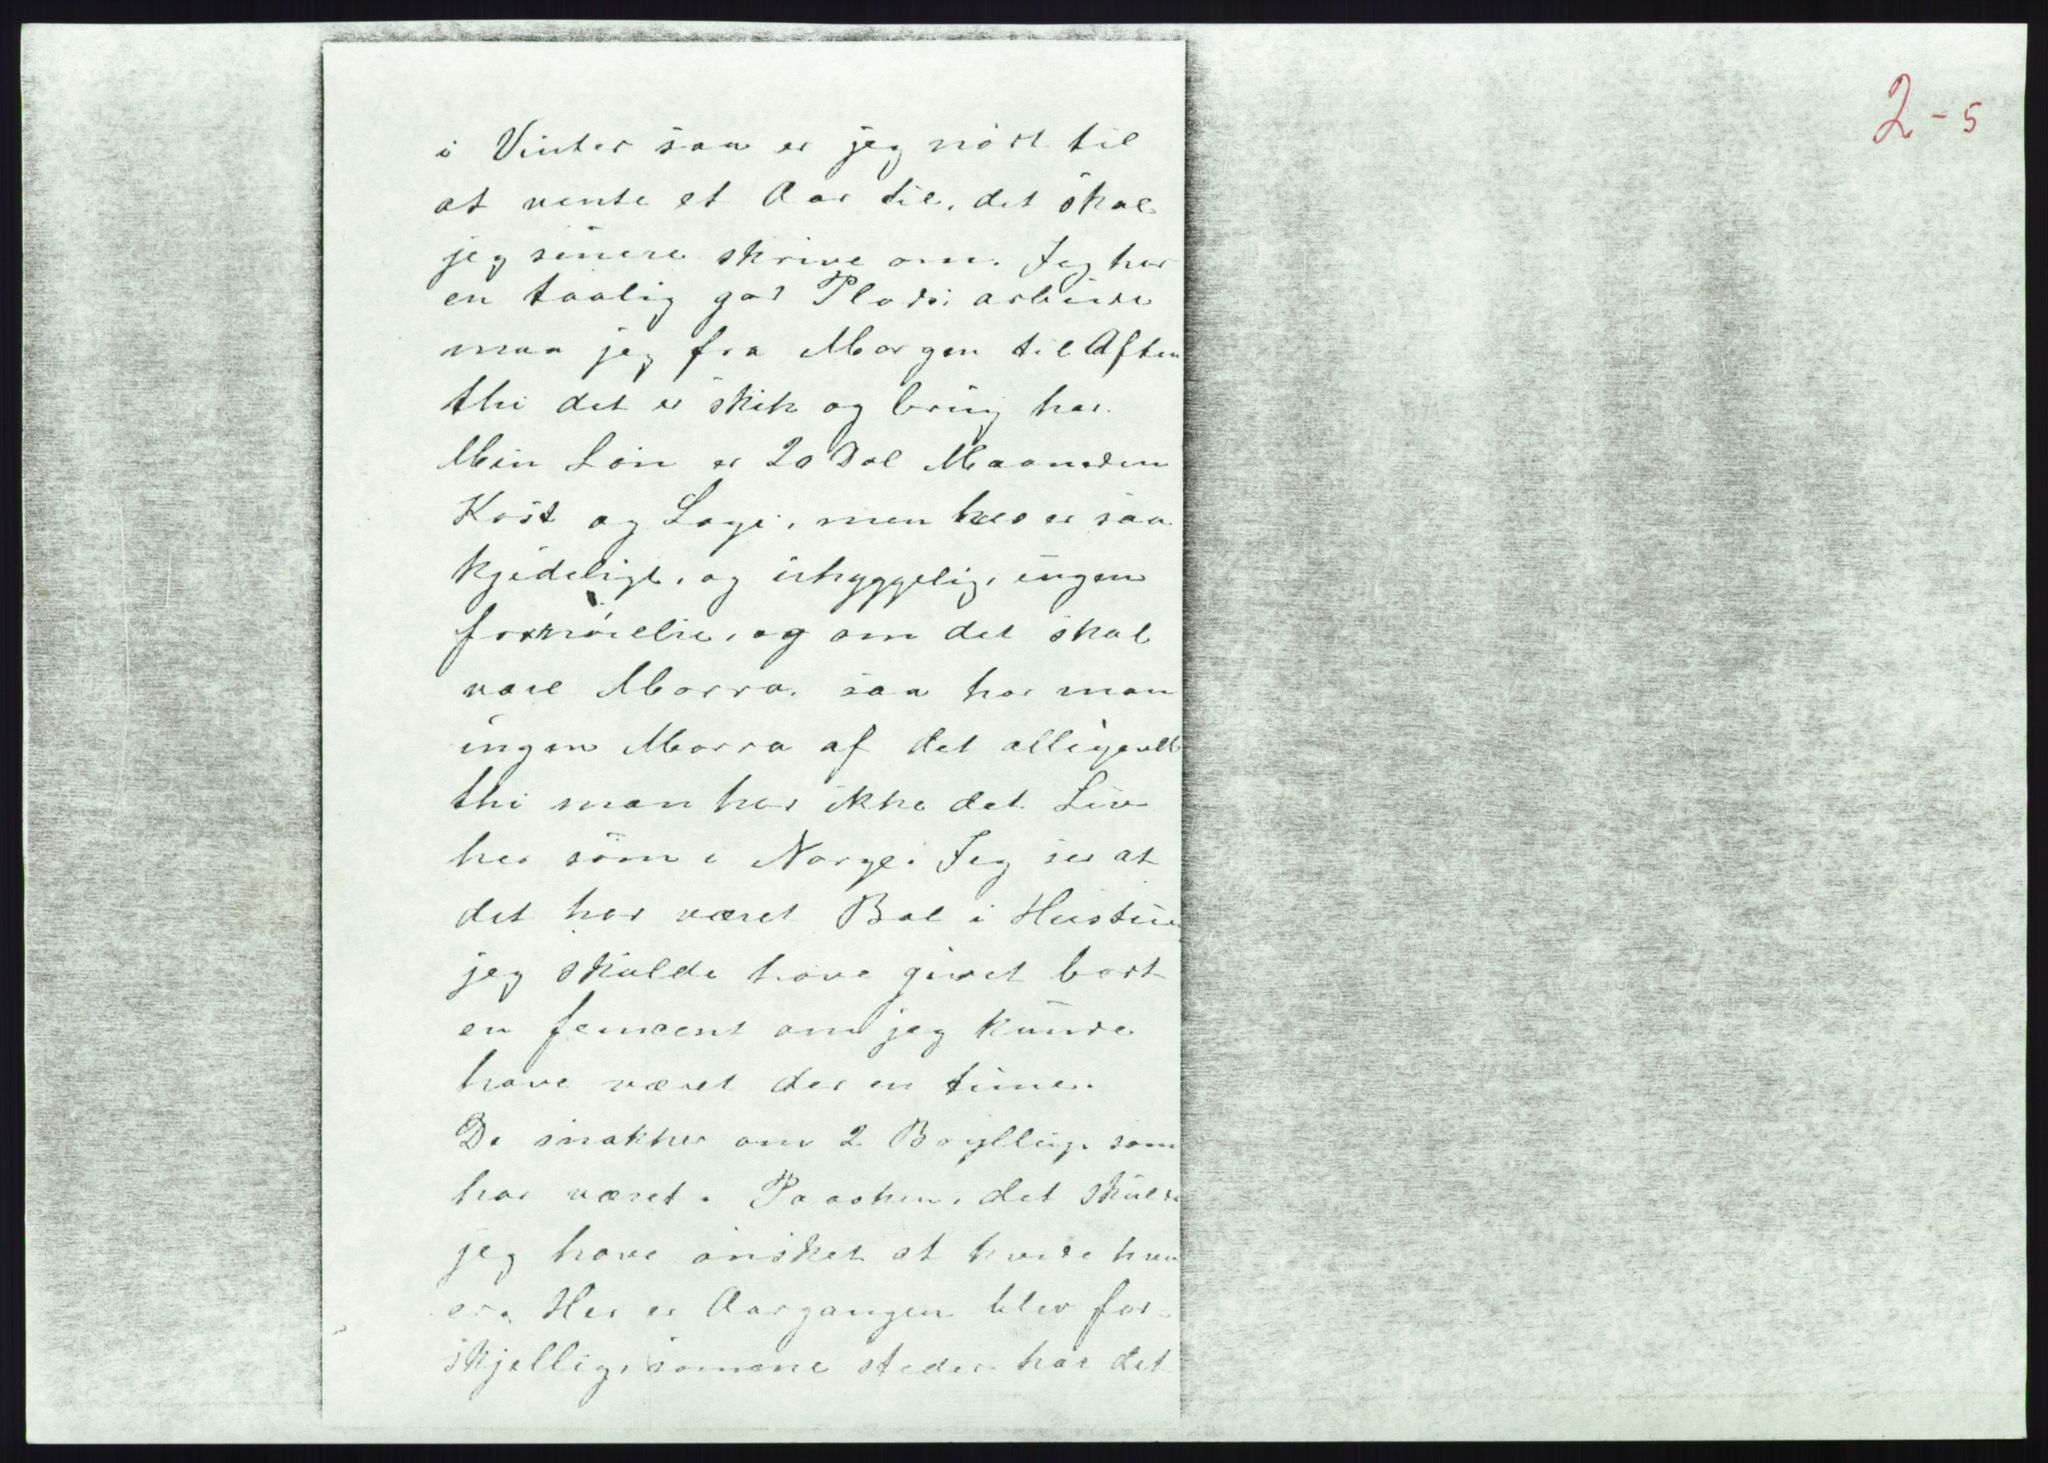 2-5
i Vinter saa er jeg nört til
at vente et Aar til, det skal
jeg senere skrive om. Jeg har
en taalig god Plads, arbeide
maa jeg fra Morgen til Aften
thi det er skik og brug her.
Min Lön er 20 Dol Maaneden
Kost og Logi, men her er saa
kjedeligt, og uhyggelig, ingen
fornöielse, og om det skal
være Morro, saa har man
ingen Morro af det alligevel
thi man har ikke det Liv
her som i Norge. Jeg ser at
det har været Bal i
jeg skulde have givet bort
en femcent om jeg kunde
have været der en time.
De snakker om 2 Bryllup som
har været i Paasken, det skulde
jeg have önsket at hvide hvem
er. Her er Aargangen blev for-
skjellig, somene steder har det